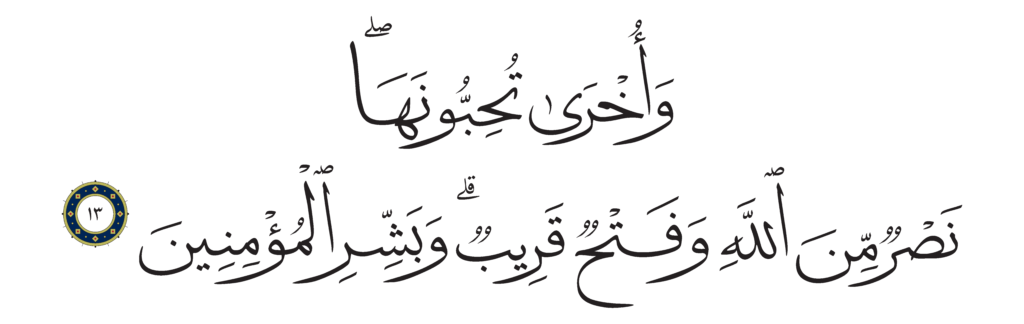 وَأُخْرَىٰ تُحِبُّونَهَا ۖ
نَصْرٌ مِّنَ ٱللَّهِ وَفَتْحٌ قَرِيبٌ ۗ وَبَشِّرِ ٱلْمُؤْمِنِينَ ١٣